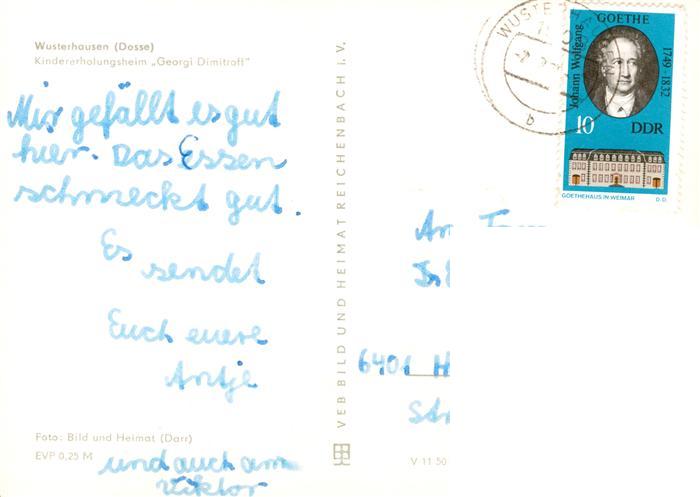 Wusterhausen (Dosse)
Kindererholungsheim „Georgi Dimitroff"
Mir gefällt es gut
hier. Das Essen
schmeckt gut.
Es
sendet
Euch euere
Antje
und auch am
Viktor
Foto: Bild und Heimat (Darr)
EVP 0,25 M
VEB BILD UND HEIMAT REICHENBACH I. V.
V 11 50
WUSTER
b
GOETHE
Johann Wolfgang
1749-1832
10 DDR
GOETHEHAUS IN WEIMAR D.D.
An
6401 H